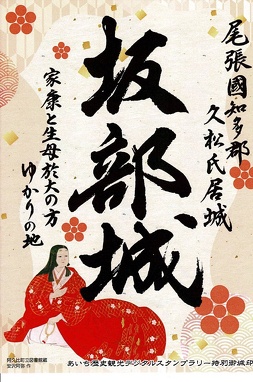 尾張國知多郡
久松氏居城
坂部城
家康と生母於大の方
ゆかりの地
阿久比町立図書館蔵
あいち歴史観光デジタルスタンプラリー特別御城印